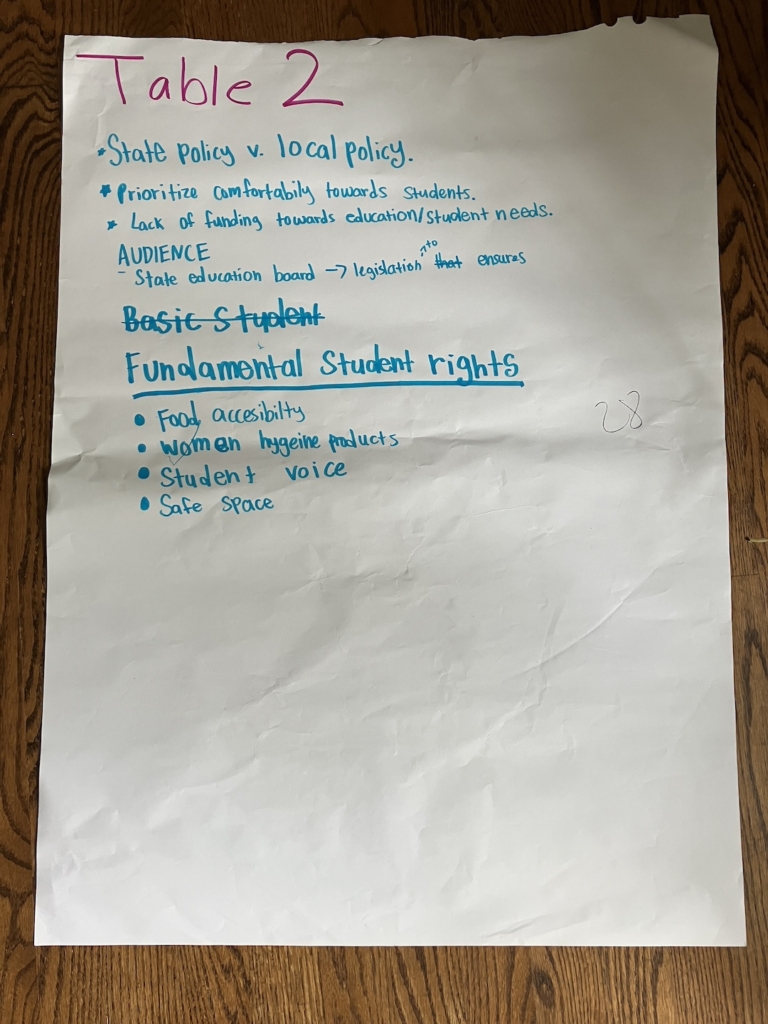 Table 2
* State policy v. local policy.
* Prioritize comfortabily towards students.
* Lack of funding towards education/student needs.
AUDIENCE
- State education board → legislation ^to ~~that~~ ensures
~~Basic Student~~
Fundamental Student rights
• Food accesibilty
• women hygeine products
• Student voice
• Safe space
28